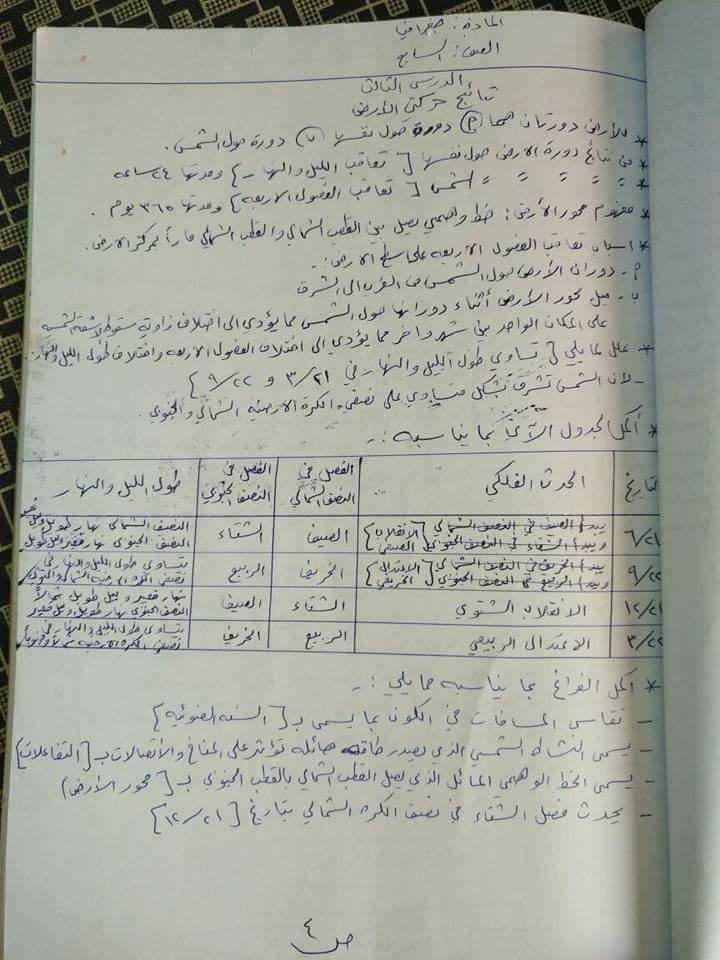 المادة: جغرافيا
الصف: السابع
الدرس الثالث
نتائج حركتي الأرض
* للأرض دورتان هما (P) دورة حول نفسها (ب) دورة حول الشمس.
* من نتائج دورة الارض حول نفسها [تعاقب الليل والنهار] ومدتها ٢٤ ساعه
* = = = = الشمس [تعاقب الفصول الاربعه] ومدتها ٣٦٥ يوم.
* مفهوم محور الأرض: خط وهمي يصل بين القطب الشمالي والقطب الشمالي ماراً بمركز الارض.
* اسباب تعاقب الفصول الاربعه على سطح الارض:-
P - دوران الأرض حول الشمس من الغرب الى الشرق
ب - ميل محور الارض أثناء دورانها حول الشمس مما يؤدي الى اختلاف زاوية سقوط الاشعة الشمسية
على المكان الواحد بين شهر واخر مما يؤدي الى اختلاف الفصول الاربعه واختلاف طول الليل والنهار.
* علل لما يلي [تساوي طول الليل والنهار في ٣/٢١ و ٩/٢٢]
- لأن الشمس تشرق بشكل متساوي على نصفي الكرة الارضية الشمالي والجنوبي.
* أكمل الجدول الآتي بما يناسبه:-
التاريخ | الحدث الفلكي | الفصل في النصف الشمالي | الفصل في النصف الجنوبي | طول الليل والنهار
٦/٢١ | يبدأ الصيف في النصف الشمالي ويبدأ الشتاء في النصف الجنوبي [الانقلاب الصيفي] | الصيف | الشتاء | النصف الشمالي نهار طويل وليل قصير النصف الجنوبي نهار قصير وليل طويل
٩/٢٢ | يبدأ الخريف في النصف الشمالي ويبدأ الربيع في النصف الجنوبي [الاعتدال الخريفي] | الخريف | الربيع | يتساوى طول الليل والنهار في نصفي الكرة الارضية الشمالي والجنوبي
١٢/٢١ | الانقلاب الشتوي | الشتاء | الصيف | نهار قصير وليل طويل شمالاً النصف الجنوبي نهار طويل وليل قصير
٣/٢٢ | الاعتدال الربيعي | الربيع | الخريف | يتساوى طول الليل والنهار في نصفي الكرة الارضية شمالاً وجنوباً
* اكمل الفراغ بما يناسبه مما يلي:-
- تقاس المسافات في الكون بما يسمى بـ [السنه الضوئيه]
- يسمى النشاط الشمسي الذي يصدر طاقه هائله تؤثر على المناخ والأتصالات بـ [التفاعلات]
- يسمى الخط الوهمي المائل الذي يصل القطب الشمالي بالقطب الجنوبي بـ (محور الأرض)
- يحدث فصل الشتاء في نصف الكره الشمالي بتاريخ [١٢/٢١]
ص ٤